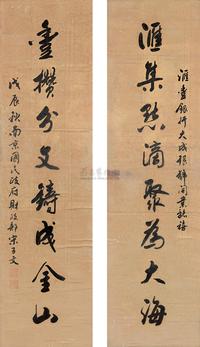 匯豐銀行大成根辭開業誌禧
匯集點滴聚為大海
豐攢分文鑄成金山
戊辰秋南京國民政府財政部宋子文